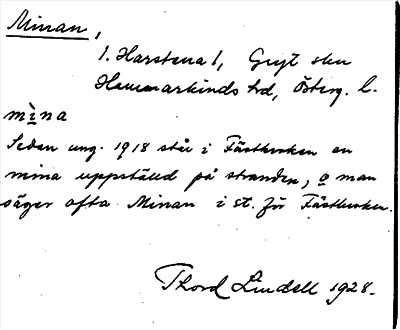 Minan,
1. Harstena 1, Gryt skn
Hammarkinds hd, Österg. l.
mìna
Sedan ung. 1918 står i Fästhuken en
mina uppställd på stranden, o man
säger ofta Minan i st. för Fästhuken.
Thord Lindell 1928.